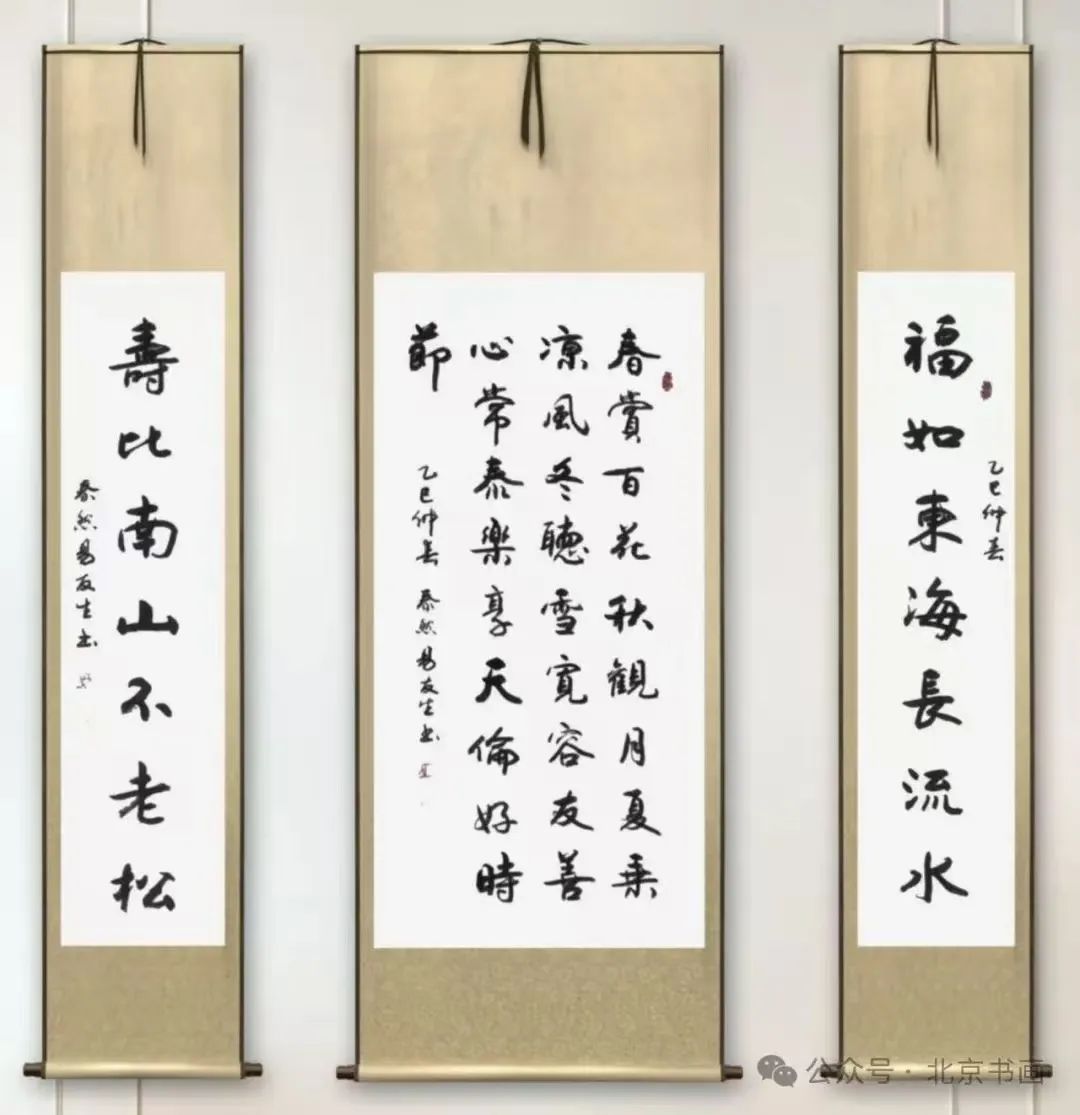 福如東海長流水
乙巳仲春
春賞百花秋觀月夏乘
涼風冬聽雪寬容友善
心常泰樂享天倫好時
節
乙巳仲春 泰然易友生书
壽比南山不老松
泰然易友生书
公众号·北京书画